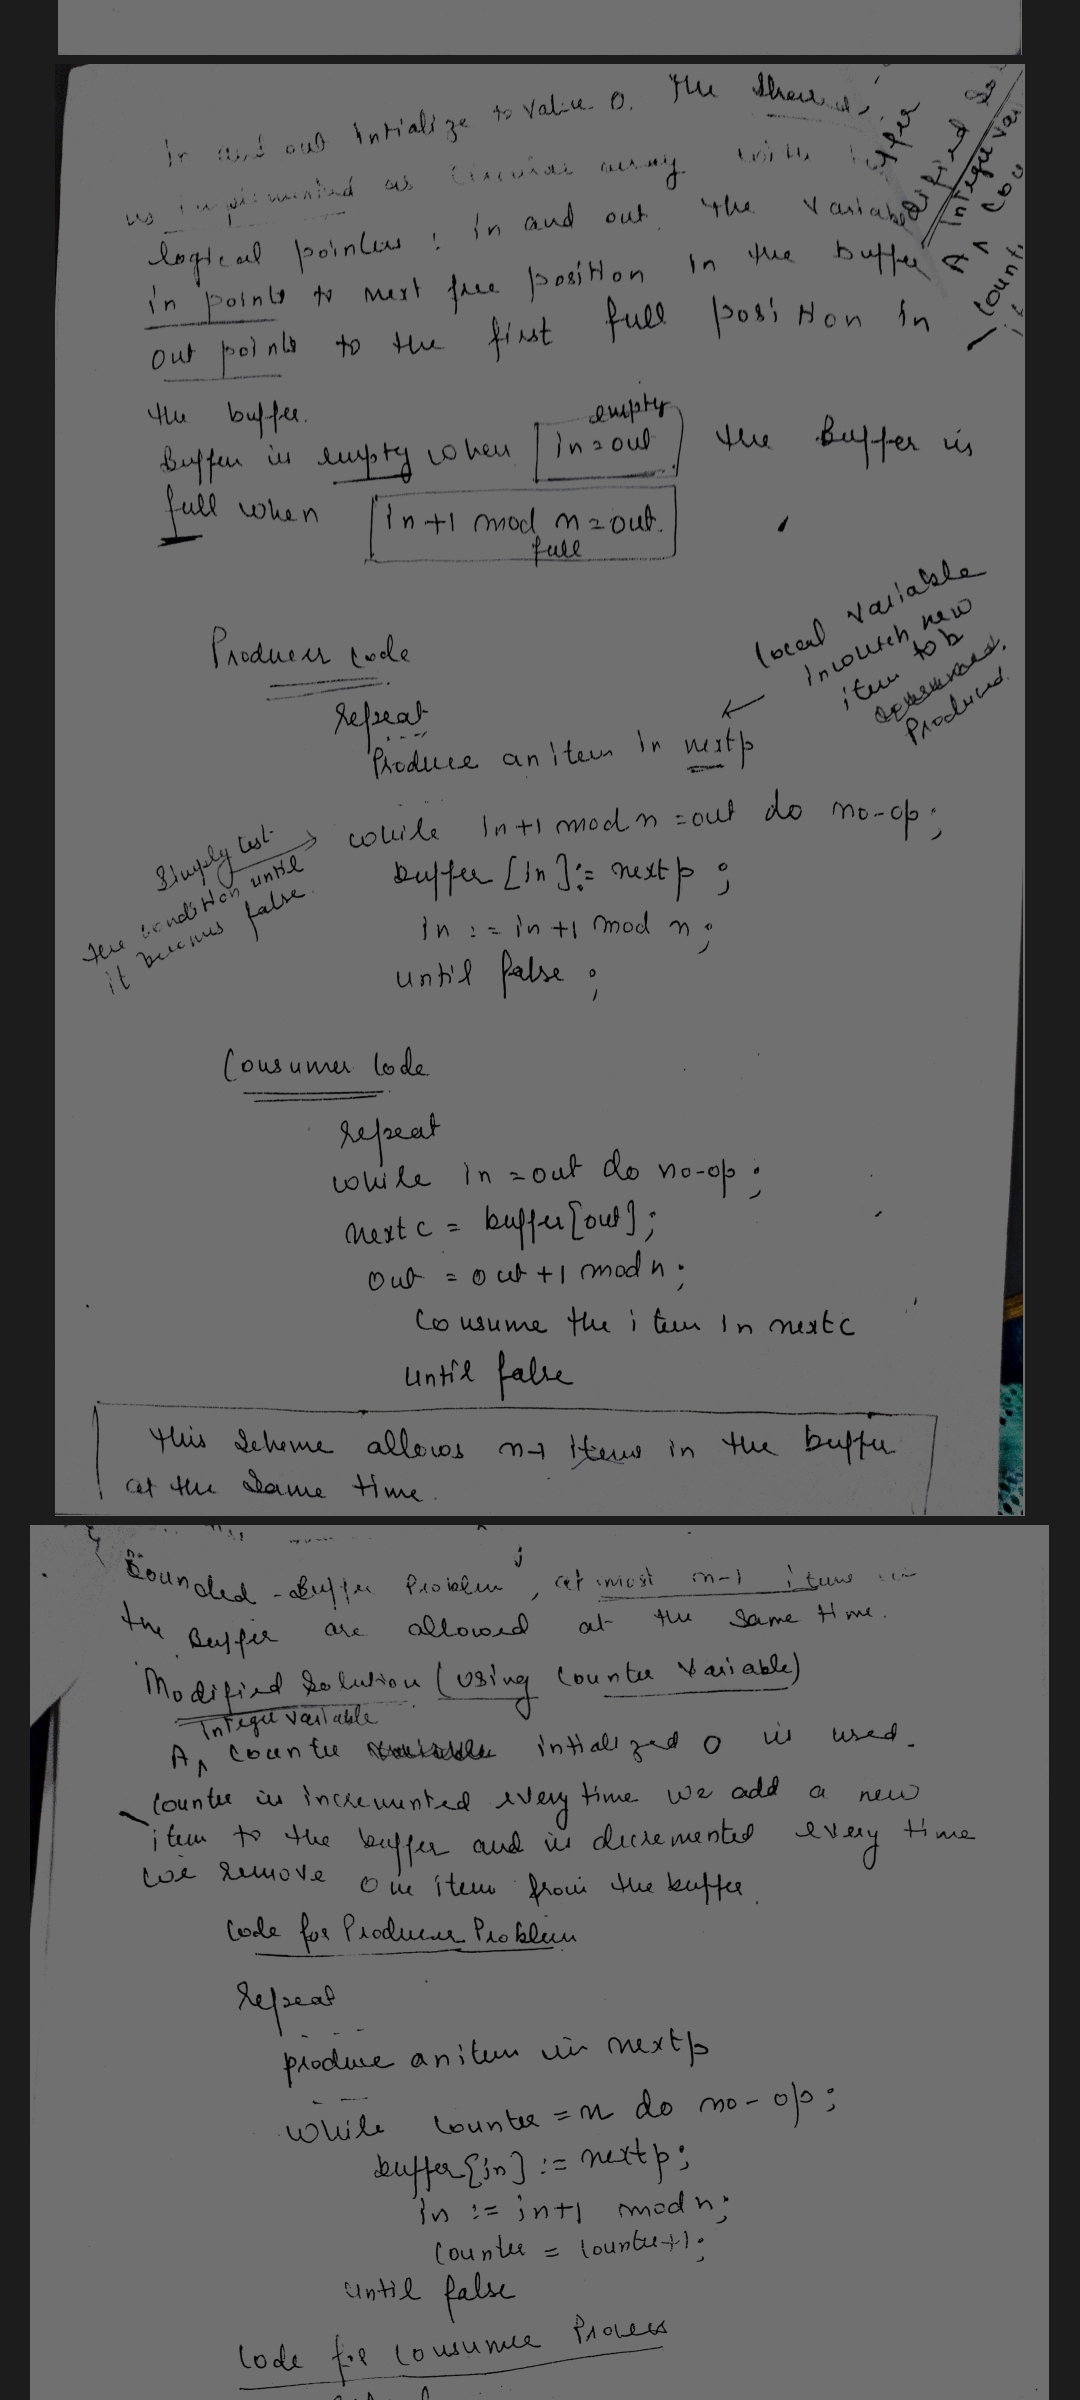 In and out Intialize to value 0. The Shared
is implemented as Circular array with
logical pointers : in and out. The variable
in points to next free position in the buffer
out points to the first full position in
the buffer.
empty
Buffer is empty when in = out the Buffer is
full when in+1 mod n = out.
full
Producer code
local variable
in which new
item to b
consumed.
Produced
repeat
Produce an item in nextp
Simply test
the condition until
it becomes false.
while in+1 mod n = out do no-op;
buffer [in] := nextp ;
in := in+1 mod n;
until false ;
Consumer Code
repeat
while in = out do no-op;
nextc = buffer[out];
out = out+1 mod n;
Consume the item in nextc
until false
This Scheme allows n-1 items in the buffer
at the same time.
Bounded-Buffer Problem, at most n-1 items
the Buffer are allowed at the same time.
Modified Solution (Using Counter Variable)
Integer variable
A ^ counter variable intialized 0 is used.
Counter is incremented every time we add a new
item to the buffer and is decremented every time
we remove one item from the buffer.
Code for Producer Problem
repeat
produce an item in nextp
while counter = n do no-op;
buffer[in] := nextp;
in := in+1 mod n;
Counter = Counter+1;
until false
Code for Consumer Process